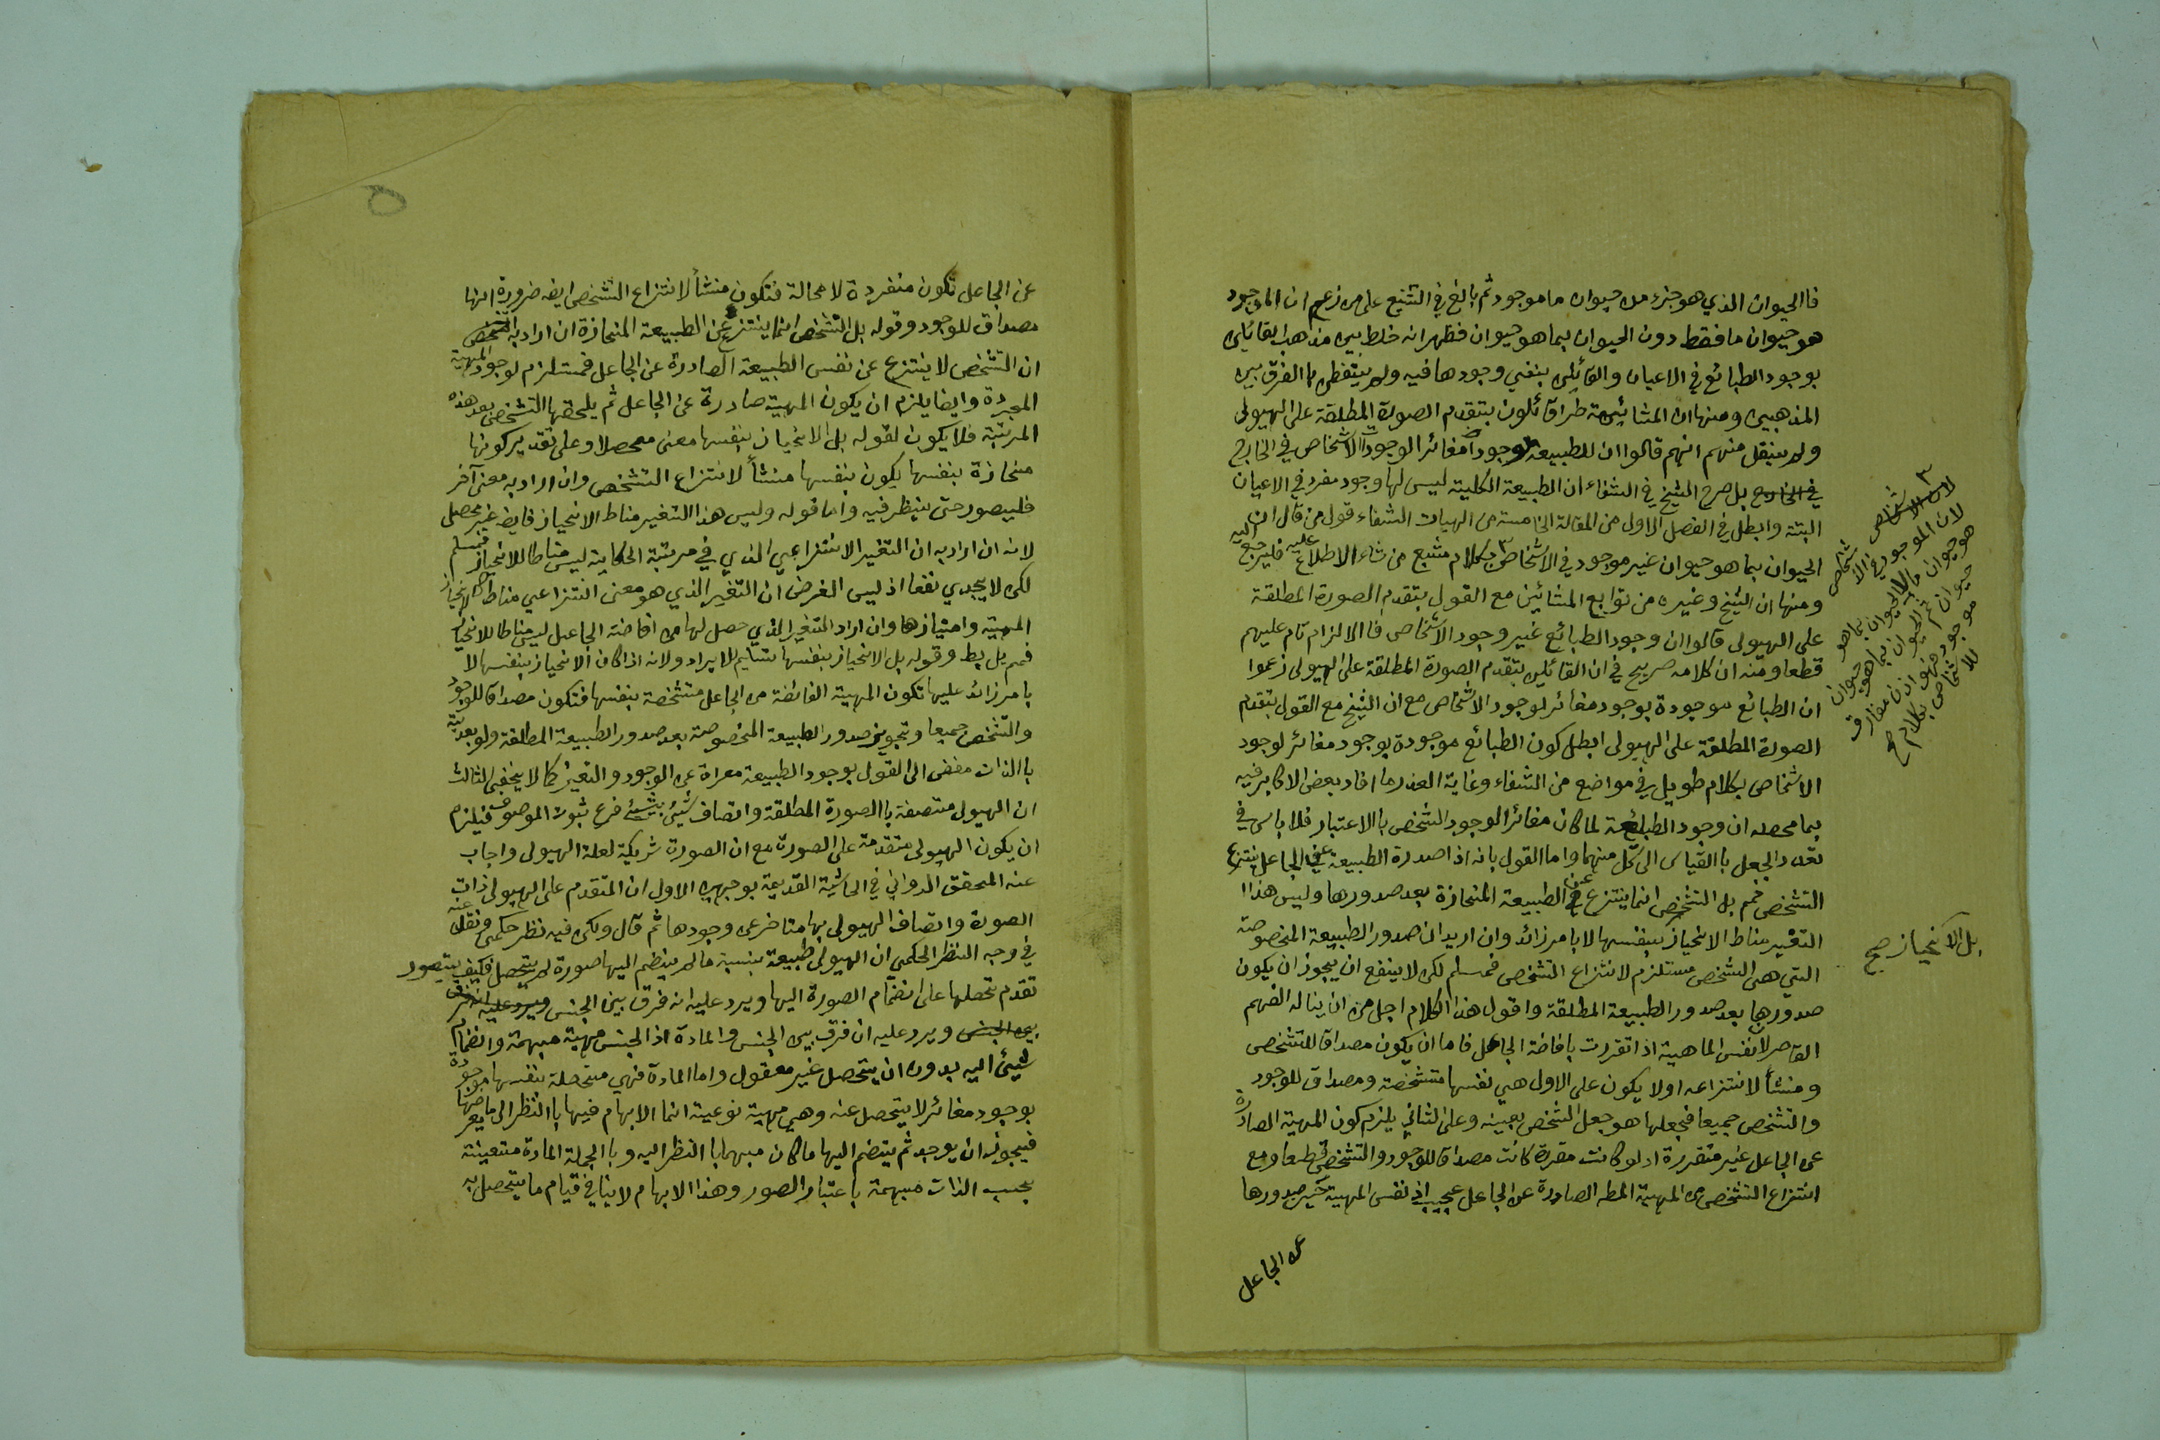 فاالحيوان الذي هو جزء من حيوان ما موجود ثم بالغ في التشنيع على من زعم ان الموجود
هو حيوان ما فقط دون الحيوان بما هو حيوان فظهر انه خلط بين مذهب القائلين
بوجود الطبائع في الاعيان والقائلين بنفي وجودها فيه ولم يتفطن بالفرق بين
المذهبين ومنها ان المشائين طرا قائلون بتقدم الصورة المطلقة على الهيولى
ولم ينقل منهم انهم قالوا ان للطبيعة وجودا مغائرا لوجود الاشخاص في الخارج
في الخارج بل صرح الشيخ في الشفاء ان الطبيعة الكلية ليس لها وجود مفرد في الاعيان
البتة وابطل في الفصل الاول من المقالة الخامسة من الهيات الشفاء قول من قال ان
الحيوان بما هو حيوان غير موجود في الاشخاص بكلام مشبع من شاء الاطلاع عليه فليرجع اليه
ومنها ان الشيخ وغيره من توابع المشائين مع القول بتقدم الصورة المطلقة
على الهيولى قالوا ان وجود الطبائع غير وجود الاشخاص فاالالزام تام عليهم
قطعا ومنه ان كلامه صريح في ان القائلين بتقدم الصورة المطلقة على الهيولى زعموا
ان الطبائع موجودة بوجود مغائر لوجود الاشخاص مع ان الشيخ مع القول بتقدم
الصورة المطلقة على الهيولى ابطل كون الطبائع موجودة بوجود مغائر لوجود
الاشخاص بكلام طويل في مواضع من الشفاء وغاية العذر ما افاد بعض الاكابر فيه
بما محصله ان وجود الطبيعة لما كان مغائرا لوجود الشخص باالاعتبار فلا باس في
تعدد الجعل باالقياس الى كل منهما واما القول بانه اذا صدرة الطبيعة عن الجاعل ينتزع
التشخص فمم بل التشخص انما ينتزع عن الطبيعة المنحازة بعد صدورها وليس هذا
التغير مناط الانحياز بنفسها لا بامر زائد وان اريد ان صدور الطبيعة المخصوصة
التي هي الشخص مستلزم لانتزاع التشخص فمسلم لكن لا ينفع ان يجوز ان يكون
صدورها بعد صدور الطبيعة المطلقة واقول هذا الكلام اجل من ان يناله الفهم
القاصر لان نفس الماهية اذا تقررت بافاضة الجاعل فاما ان يكون مصداقا للتشخص
ومنشأ لانتزاعه اولا يكون على الاول هي نفسها متشخصة ومصداق للوجود
والتشخص جميعا فجعلها هو جعل الشخص بعينه وعلى الثاني يلزم كون المهية الصادرة
عن الجاعل غير متقررة اذ لو كانت مقررة كانت مصداقا للوجود والتشخص قطعا ومع
انتزاع التشخص من المهية المطه الصادرة عن الجاعل عجيب اذ نفس المهية حين صدورها
عن الجاعل
لان الموجود في الاشخاص
هو حيوان ما لا الحيوان بما هو
حيوان ثم الحيوان بما هو حيوان
موجود فهو اذن مفارق
للاشخاص بكلام صح
بل الانحياز صح
عن الجاعل تكون منفردة لا محالة فتكون منشأ لانتزاع التشخص ايضه ضرورة انها
مصداق للوجود وقوله بل التشخص انما ينتزع عن الطبيعة المنحازة ان اراد به
ان التشخص لا ينتزع عن نفس الطبيعة الصادرة عن الجاعل فمستلزم لوجود المهية
المجردة وايضا يلزم ان يكون المهية صادرة عن الجاعل ثم يلحقها التشخص بعد هذه
المرتبة فلا يكون لقوله بل الانحياز بنفسها معنى محصلا وعلى تقدير كونها
منحازة بنفسها يكون بنفسها منشأ لانتزاع التشخص وان اراد به معنى آخر
فليصور حتى ينظر فيه واما قوله وليس هذا التغير مناط الانحياز فايضه غير محصل
لانه ان اراد به ان التغير الانتزاعي الذي في مرتبة الحكاية ليس مناطا للانحياز فمسلم
لكن لا يجدي نفعا اذ ليس الغرض ان التغير الذي هو معنى انتزاعي مناط الانحياز
المهية وامتيازها وان اراد التغير الذي حصل لها من افاضة الجاعل ليس مناطا للانحياز
فمم بل بط وقوله بل الانحياز بنفسها تتايم للايراد ولانه اذا كان الانحياز بنفسها لا
بامر زائد عليها تكون المهية الفائضة من الجاعل متشخصة بنفسها فتكون مصداقا للوجود
والتشخص جميعا وتجويز صدور الطبيعة المخصوصة بعد صدور الطبيعة المطلقة ولو بعدية
باالذات مفض الى القول بوجود الطبيعة معراة عن الوجود والتعين كما لا يخفى الثالث
ان الهيولى متصفة باالصورة المطلقة واتصاف شيئ بشيئ فرع ثبوت الموصوف فيلزم
ان يكون الهيولى متقدمة على الصورة مع ان الصورة شريكة لعلة الهيولى واجاب
عنه المحقق الدواني في الحاشية القديمة بوجهين الاول ان المتقدم على الهيولى ذات
الصورة واتصاف الهيولى بها متاخر عن وجودها ثم قال ولكن فيه نظر حكمي ونقل عنه
في وجه النظر الحكمي ان الهيولى طبيعة بنسبة ما لم ينظم اليها صورة لم يتحصل فكيف يتصور
تقدم تحصلها على انضمام الصورة اليها ويرد عليه انه فرق بين الجنس ويرد عليه انه فرق
بين الجنس ويرد عليه ان فرق بين الجنس والمادة اذ الجنس مهية مبهمة وانضمام
شيئ اليه بدون ان يتحصل غير معقول واما المادة فهي متحصلة بنفسها موجودة
بوجود مغائر لا يتحصل عنه وهي مهية نوعية انما الابهام فيها باالنظر الى ما يعرضها
فيجوز ان يوجد ثم ينضم اليها ما كان مبهما باالنظر اليه وباالجملة المادة متعينة
بحسب الذات مبهمة باعتبار الصور وهذا الابهام لا ينافي قيام ما يتحصل به